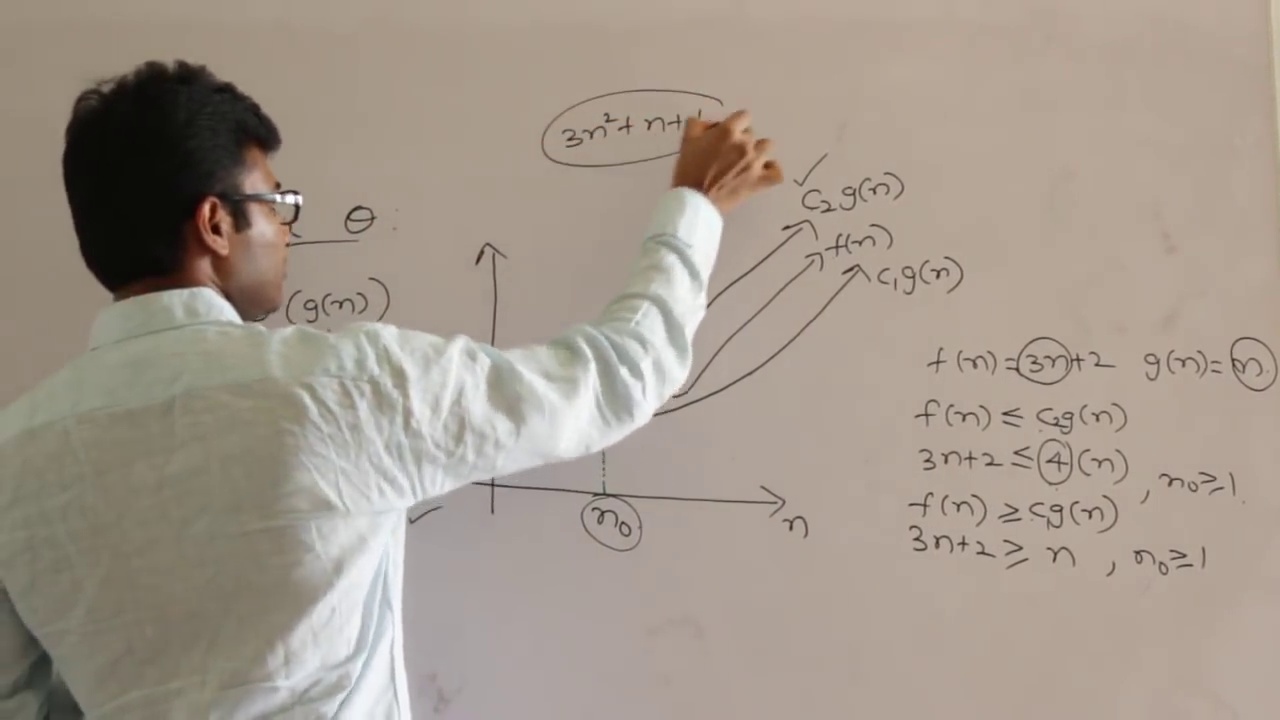 3n² + n + 1
θ :
c₂g(n)
f(n)
c₁g(n)
(g(n))
n₀
n
f(n) = 3n+2 g(n) = n
f(n) ≤ c₂g(n)
3n+2 ≤ 4(n) , n₀ ≥ 1
f(n) ≥ c₁g(n)
3n+2 ≥ n , n₀ ≥ 1